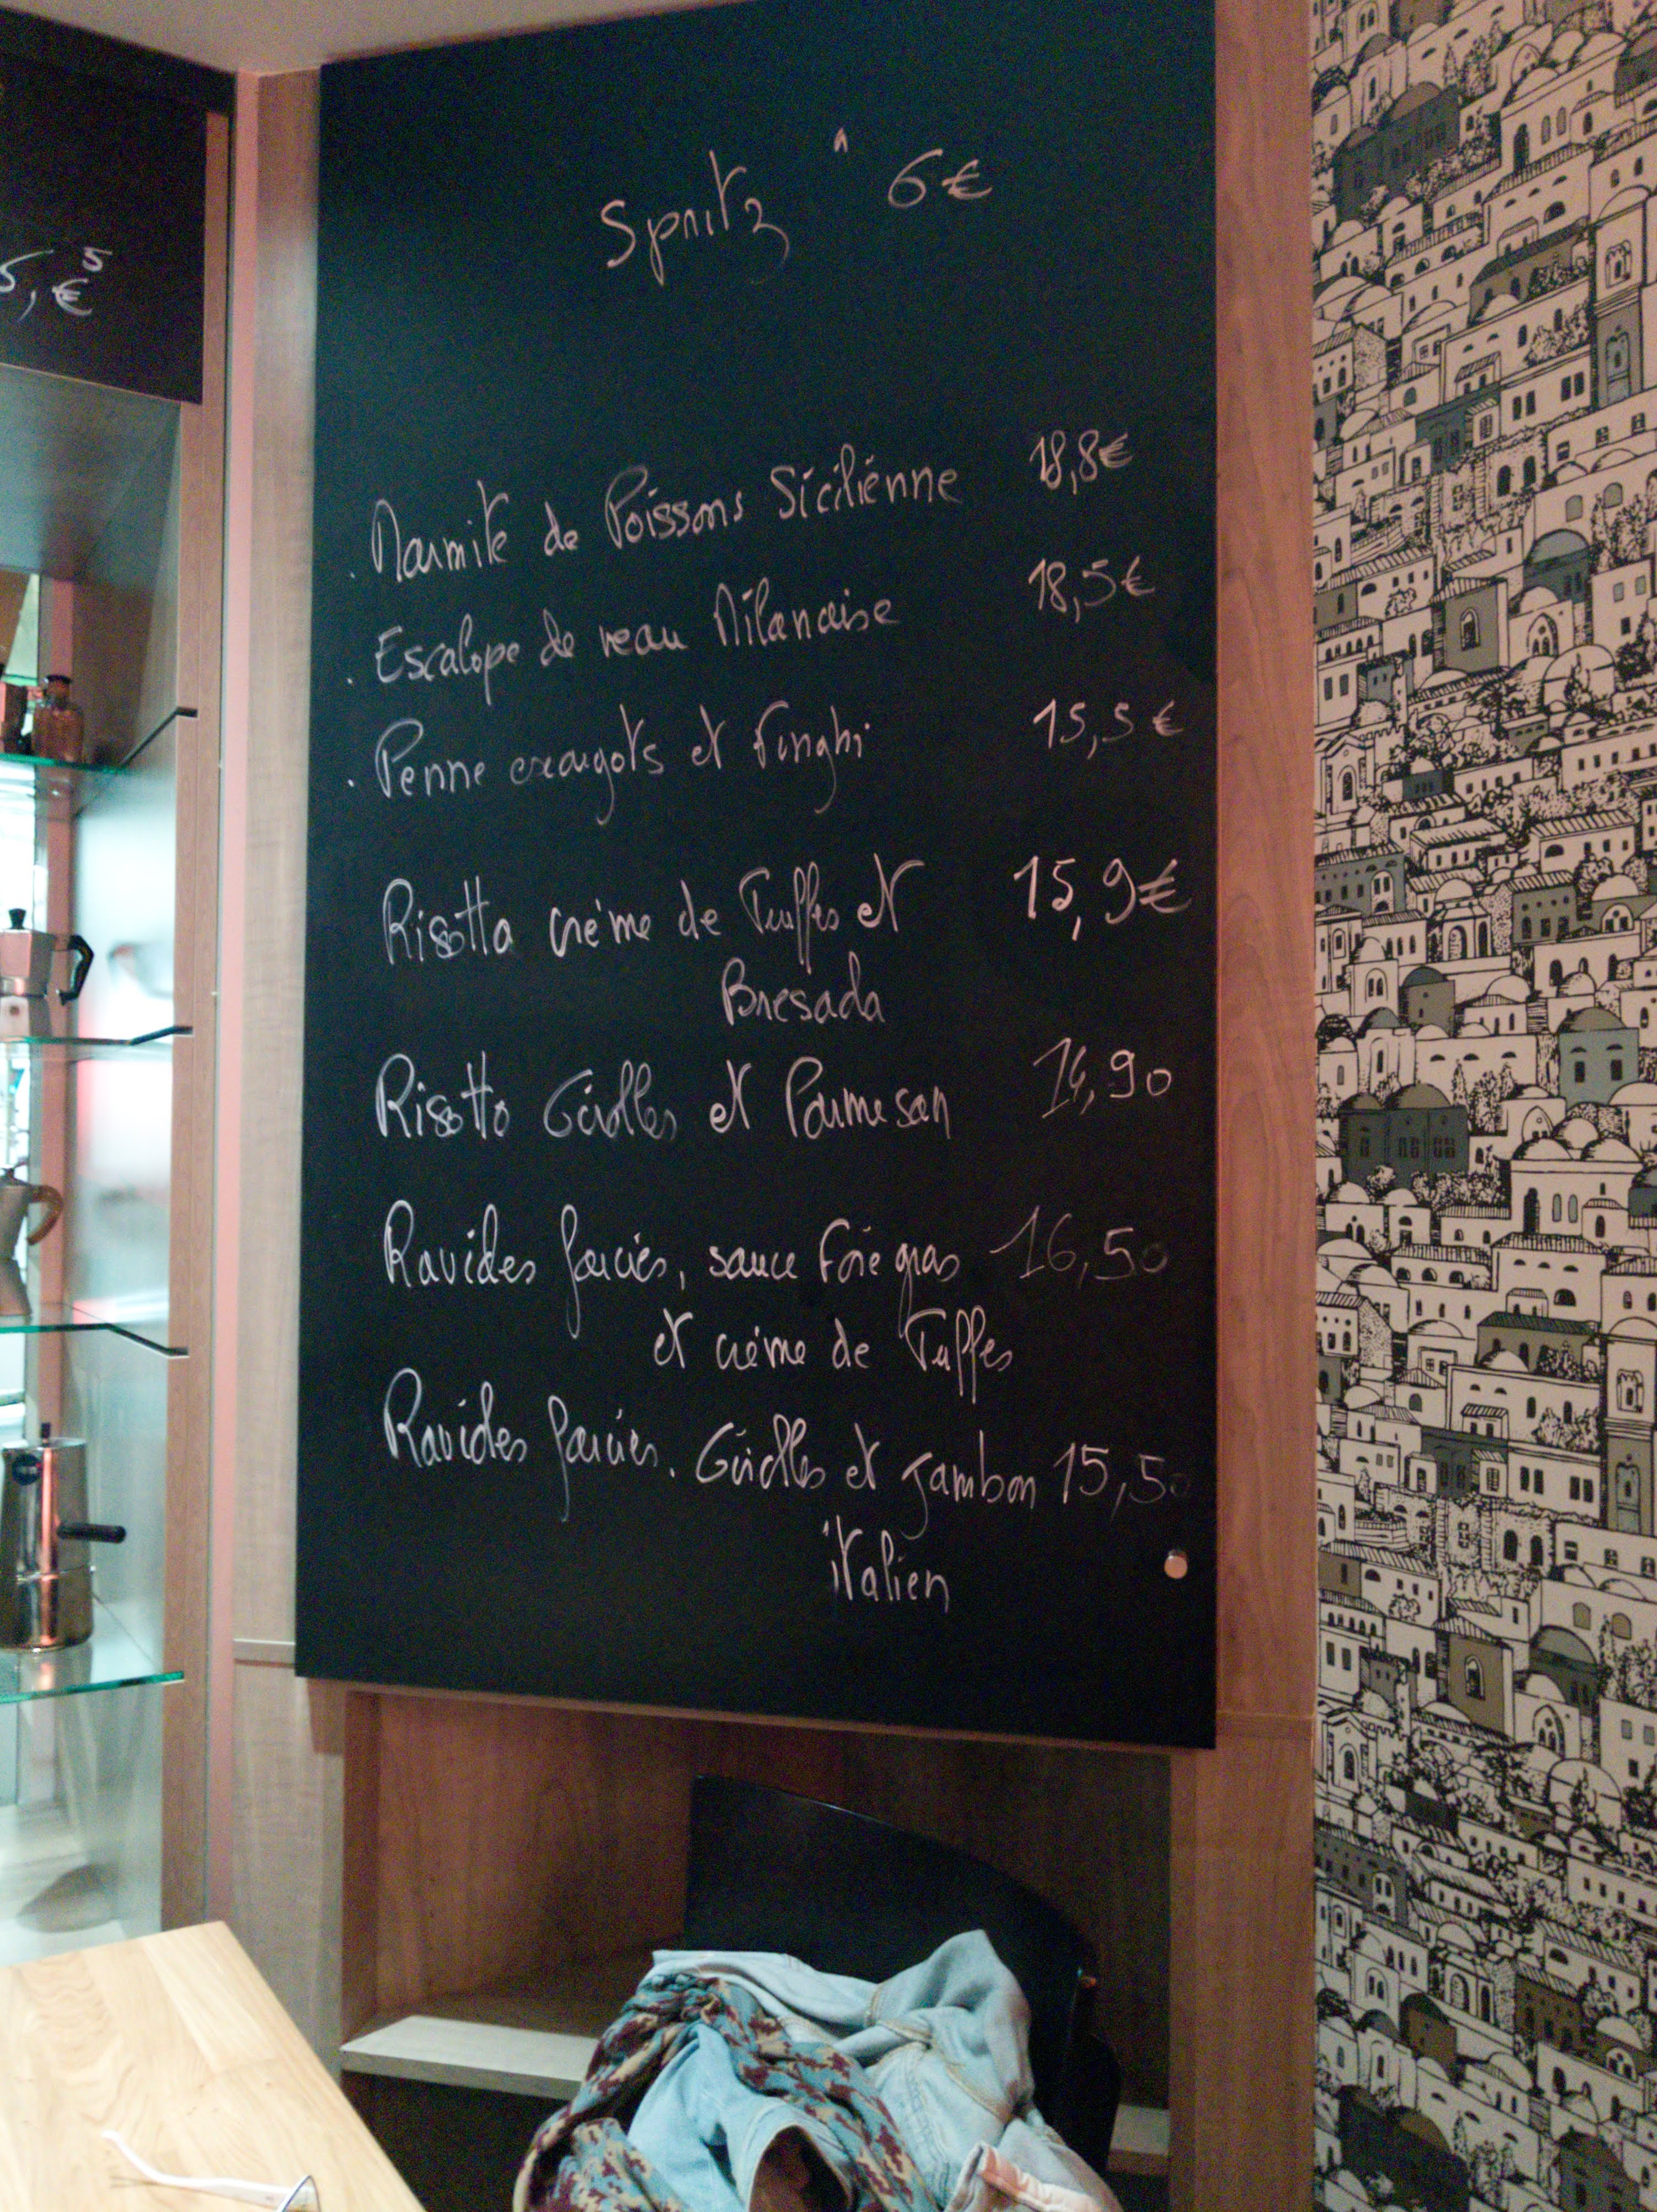 5,€5
Spritz à 6€
. Marmite de Poissons Siciliénne 18,8€
. Escalope de veau Milanaise 18,5€
. Penne escargots et Funghi 15,5€
Risotto crème de Truffes et 15,9€
Bresada
Risotto Girolles et Parmesan 14,90
Ravioles farcies, sauce Foie gras 16,50
et crème de Truffes
Ravioles farcies. Girolles et jambon 15,50
italien